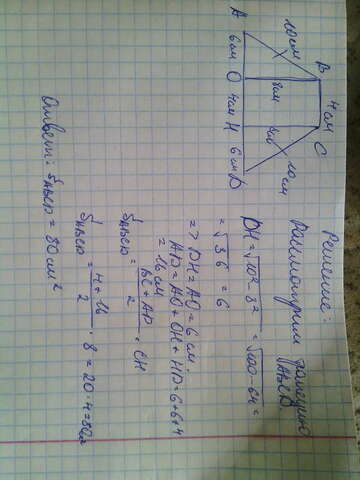 B 4 см C
10 см 8 см 8 см 10 см
A 6 см O 4 см H 6 см D
Решение:
Рассмотрим трапецию ABCD
DH = √10² - 8² = √100 - 64 =
= √36 = 6
=> DH = AO = 6 см.
AD = AO + OH + HD = 6 + 6 + 4
= 16 см
S_ABCD = BC + AD / 2 · CH
S_ABCD = 4 + 16 / 2 · 8 = 20 · 4 = 80
Ответ: S_ABCD = 80 см²